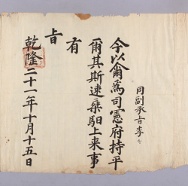 同副承旨李
今以爾爲司憲府持平
爾其斯速乘馹上來事
有
旨
乾隆二十一年十月十五日